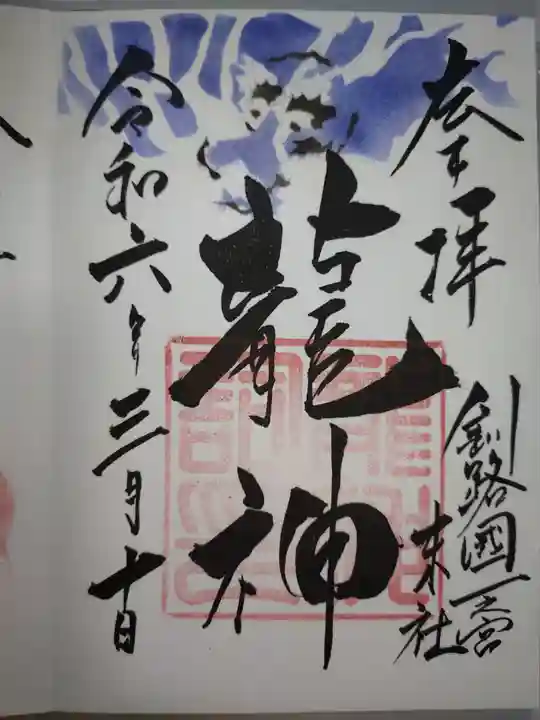 奉拝
釧路國一之宮
末社
龍神
令和六年三月十日